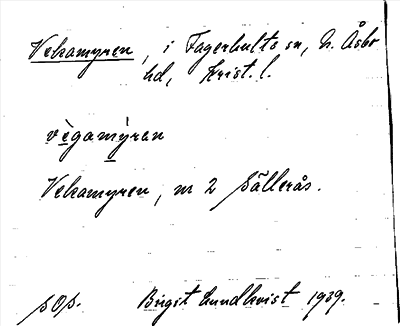 Vekamyren, i Fagerhults sn, N. Åsbo
hd, Krist. l.
vègamýran
Vekamyren, m 2 Källerås.
sOp. Birgit Lundkvist 1939.